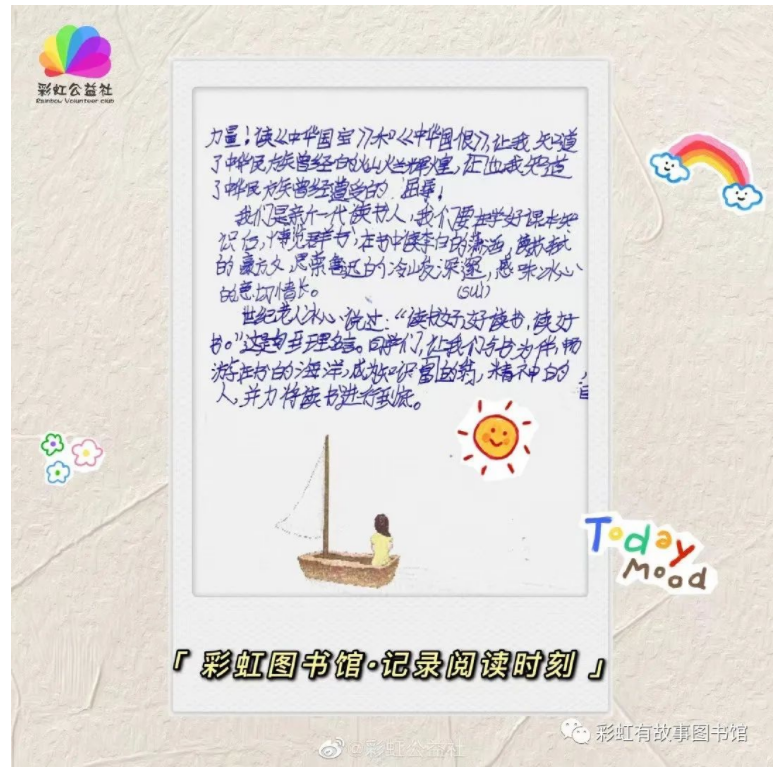 彩虹公益社
Rainbow Volunteer club
力量！读《中华国宝》和《中华国恨》，让我知道
了中华民族曾经的灿烂辉煌，证也我知道
了中华民族曾经遭受的 屈辱！
我们是新一代读书人，我们要在学好课本知
识后，博览群书，在书中读李白的潇洒，读苏轼
的豪放，思索鲁迅的冷峻深邃，感味冰心
(suì)
的思切情长。
世纪老人冰心说过：“读书好，好读书，读好
书。”这是句至理名言。同学们，让我们与书为伴，畅
游在书的海洋，成为知识富的，精神的
人，并力将读书进行到底。
Today
Mood
「 彩虹图书馆·记录阅读时刻 」
彩虹有故事图书馆
@彩虹公益社